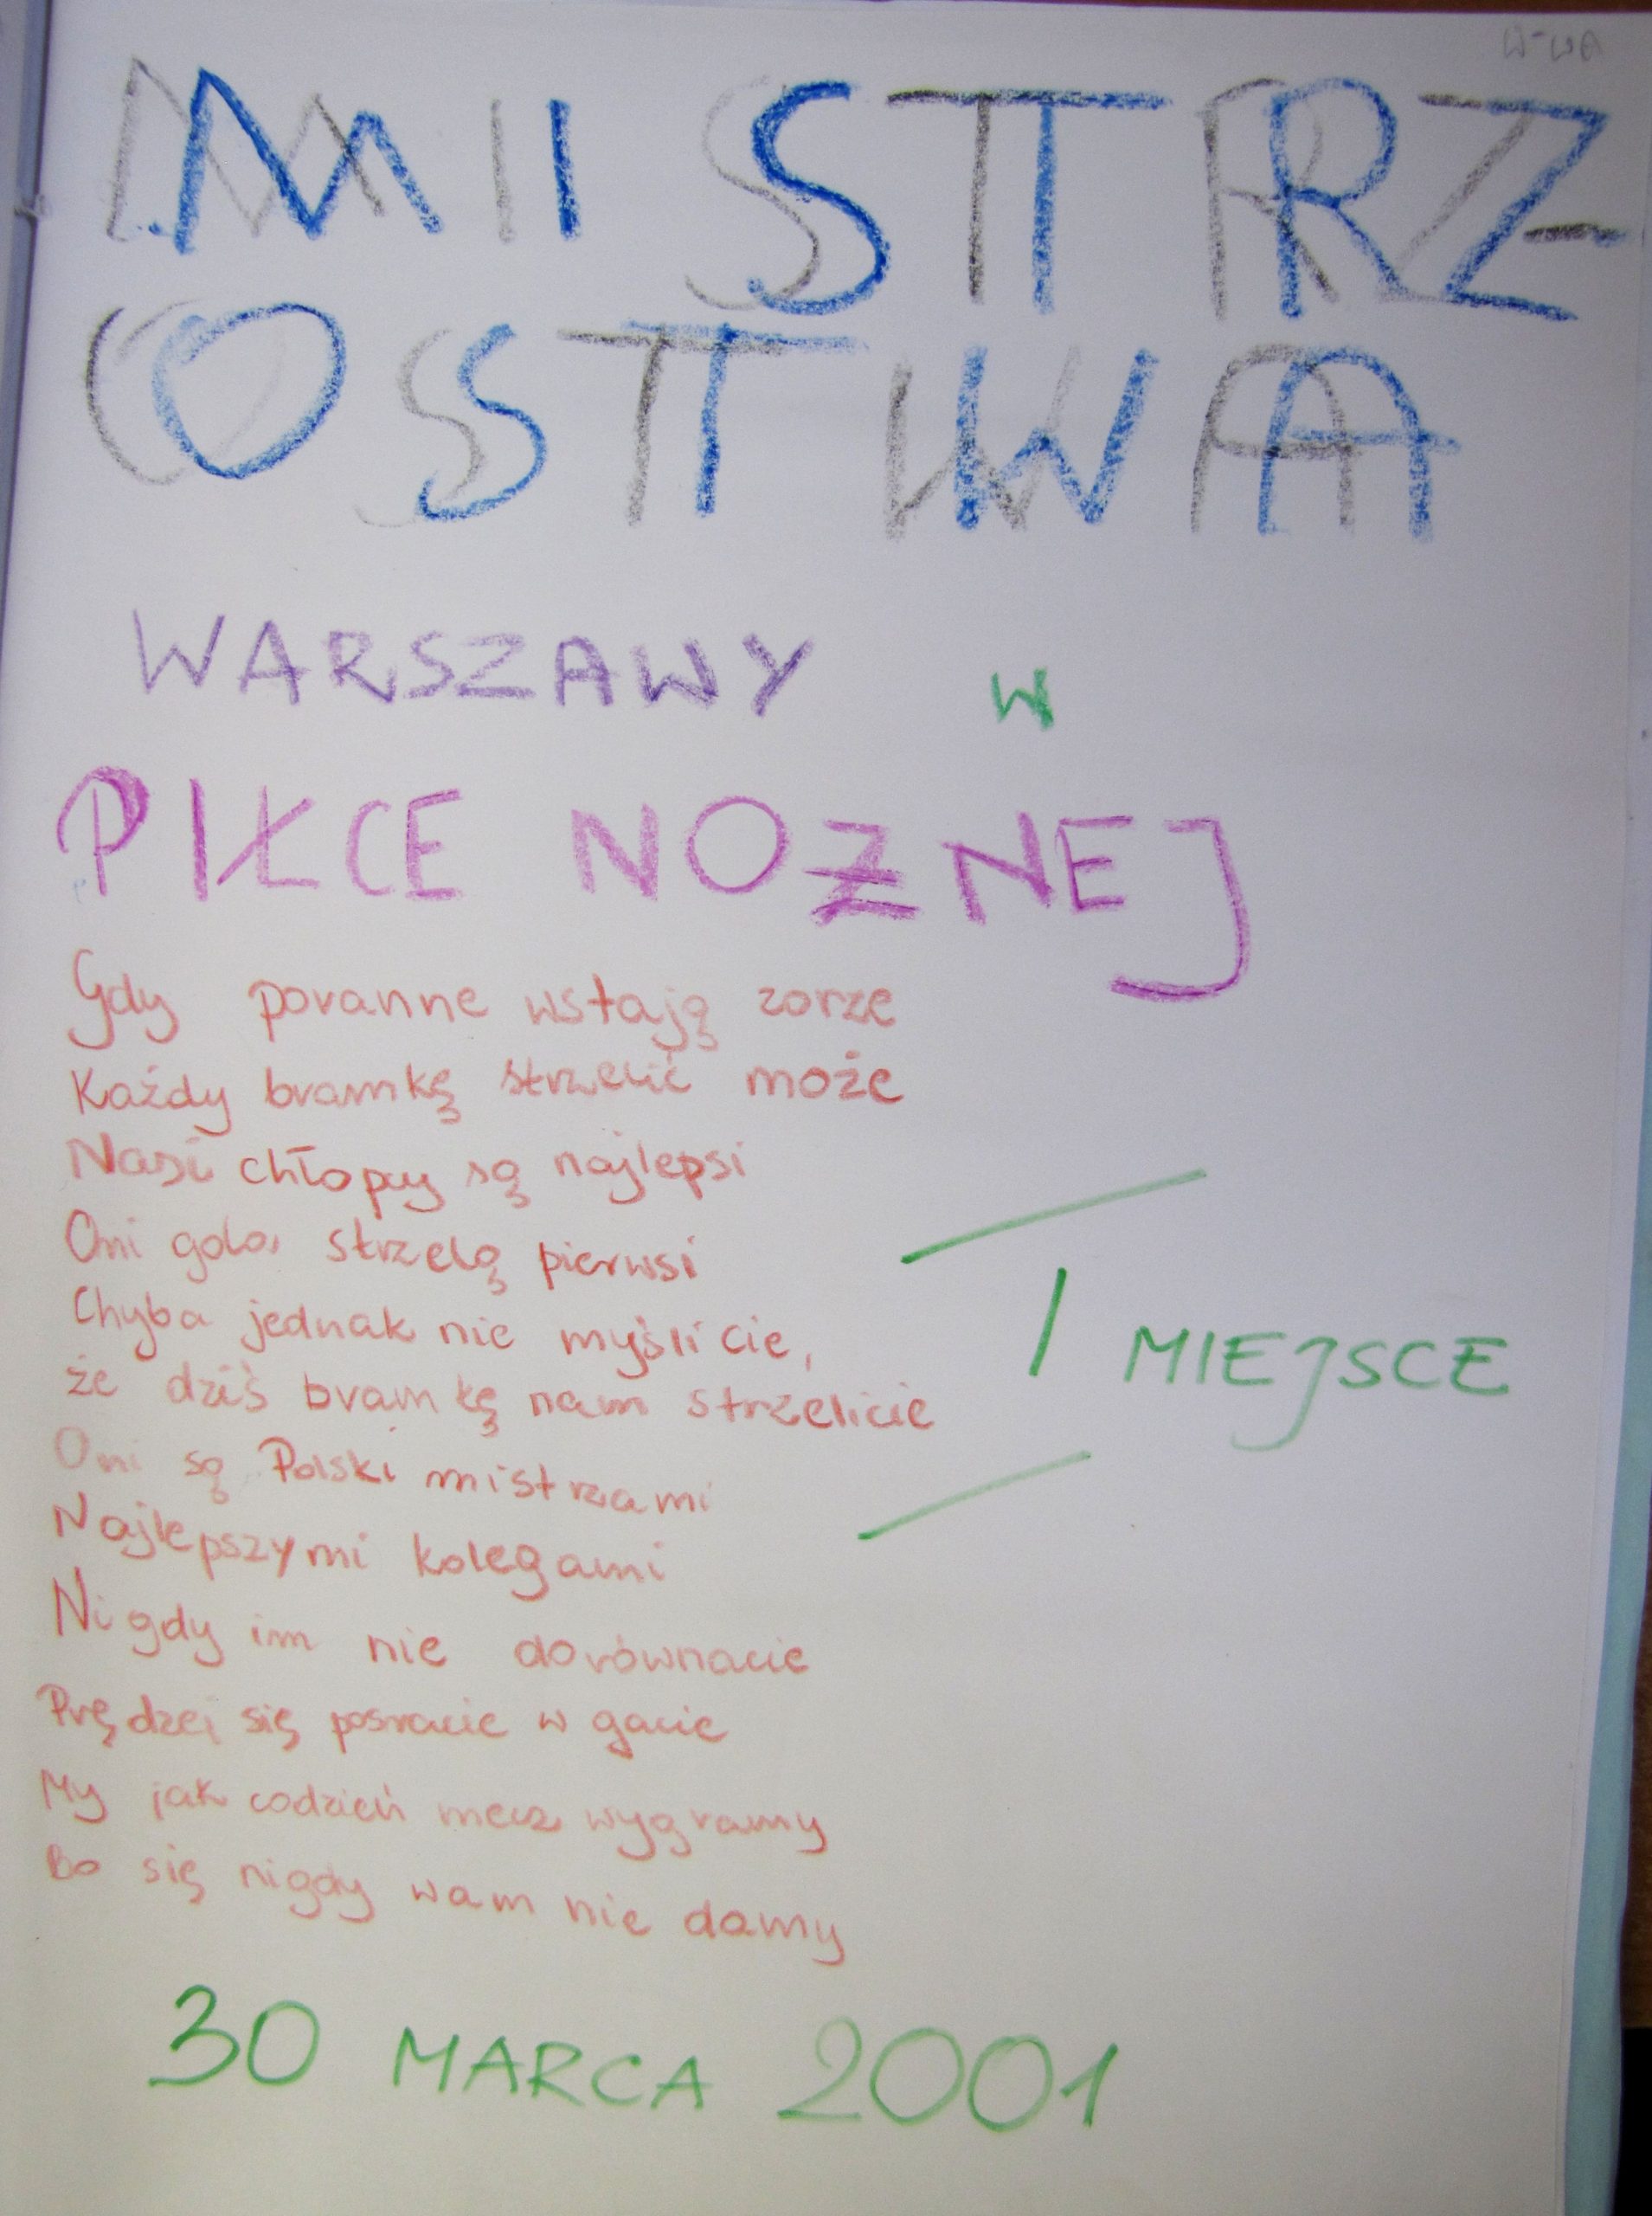 W-WA
MISTRZ-
OSTWA
WARSZAWY w
PIŁCE NOZNEJ
Gdy poranne wstają zorze
Każdy bramkę strzelić może
Nasi chłopcy są najlepsi
Oni gola strzelą pierwsi
Chyba jednak nie myślicie,
że dziś bramkę nam strzelicie
I MIEJSCE
Oni są Polski mistrzami
Najlepszymi kolegami
Nigdy im nie dorównacie
Prędzej się posracie w gacie
My jak codzień mecz wygramy
Bo się nigdy wam nie damy
30 MARCA 2001